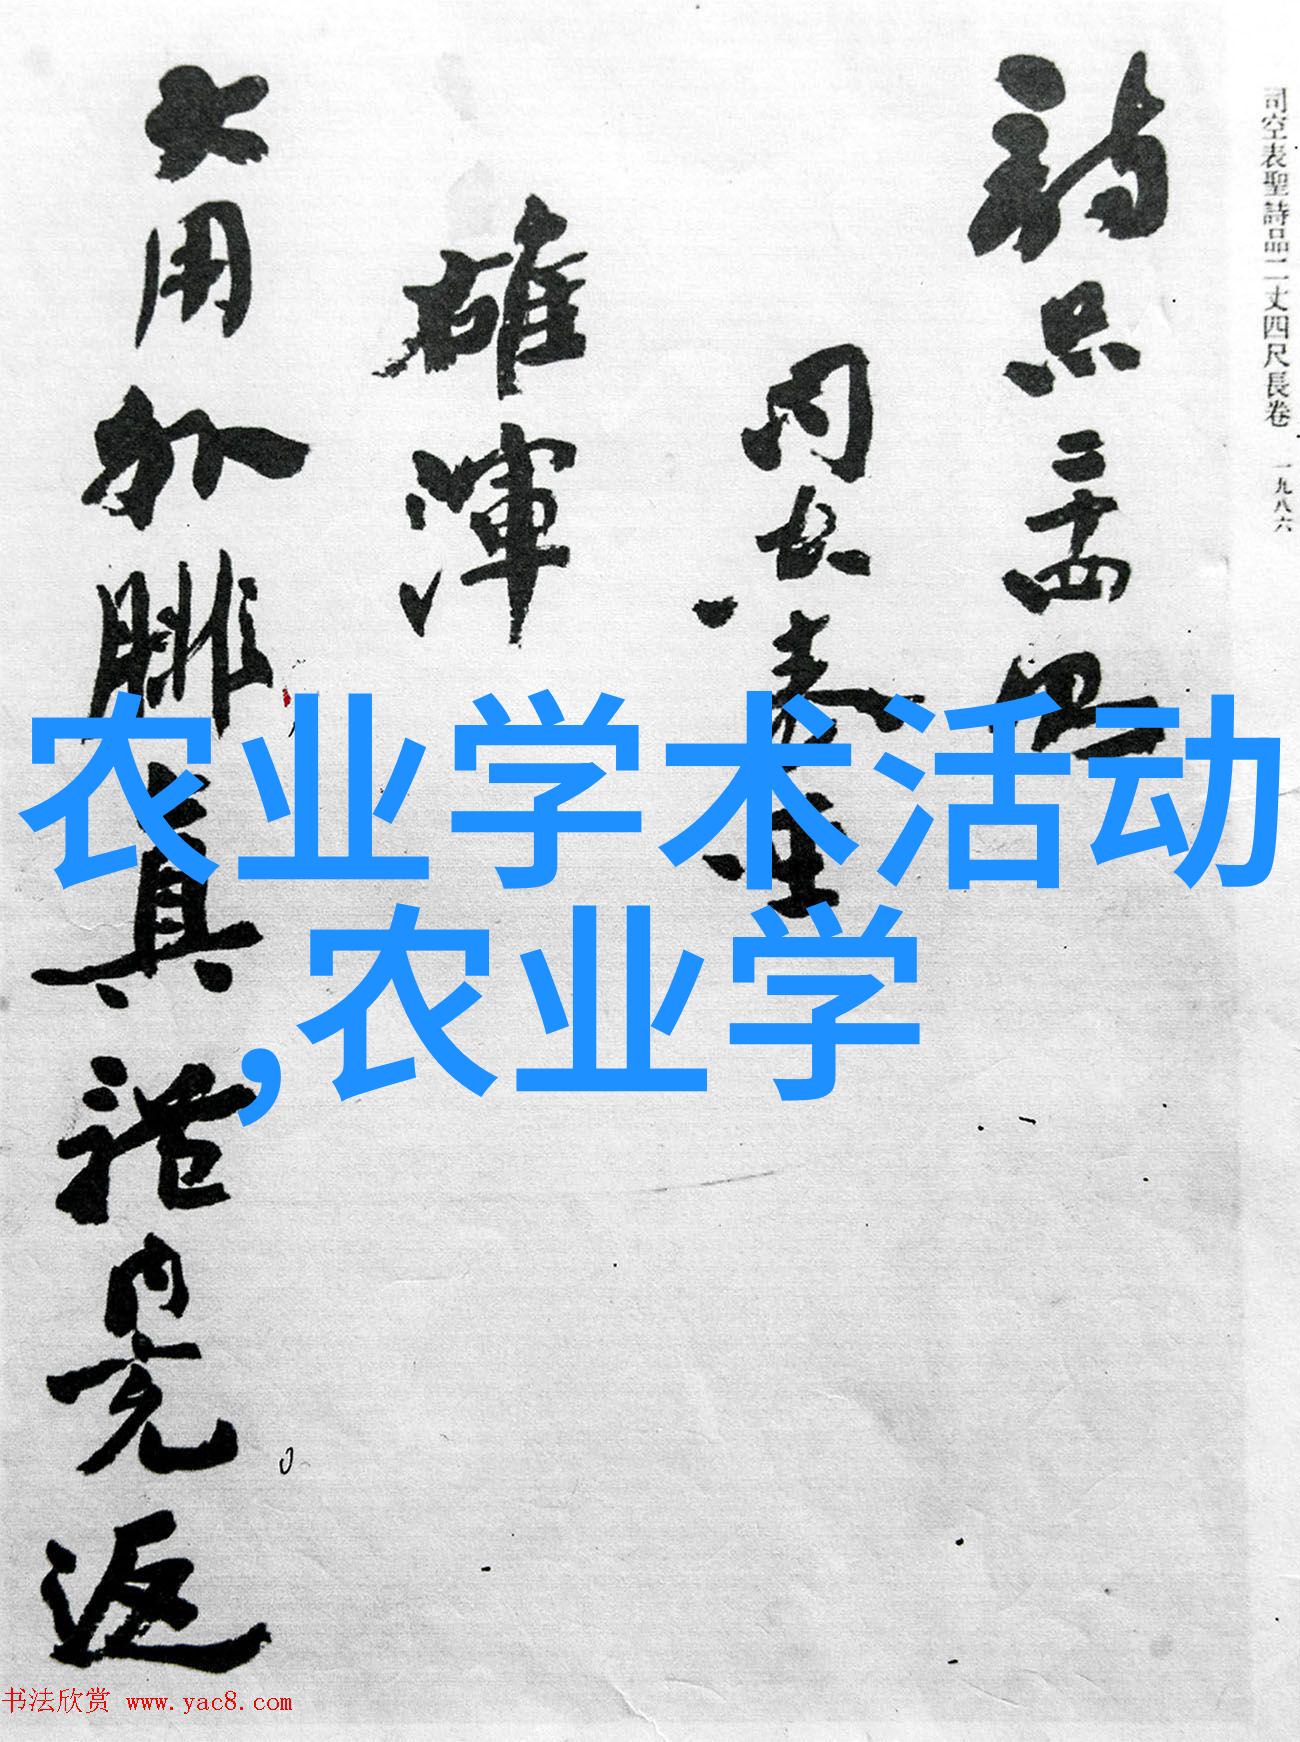 司空表聖詩品二丈四尺長卷 一九八六
詩品二十四則
雄渾
大用外腓真體內充返
农业学术活动
,农业学
书法欣赏 www.yac8.com